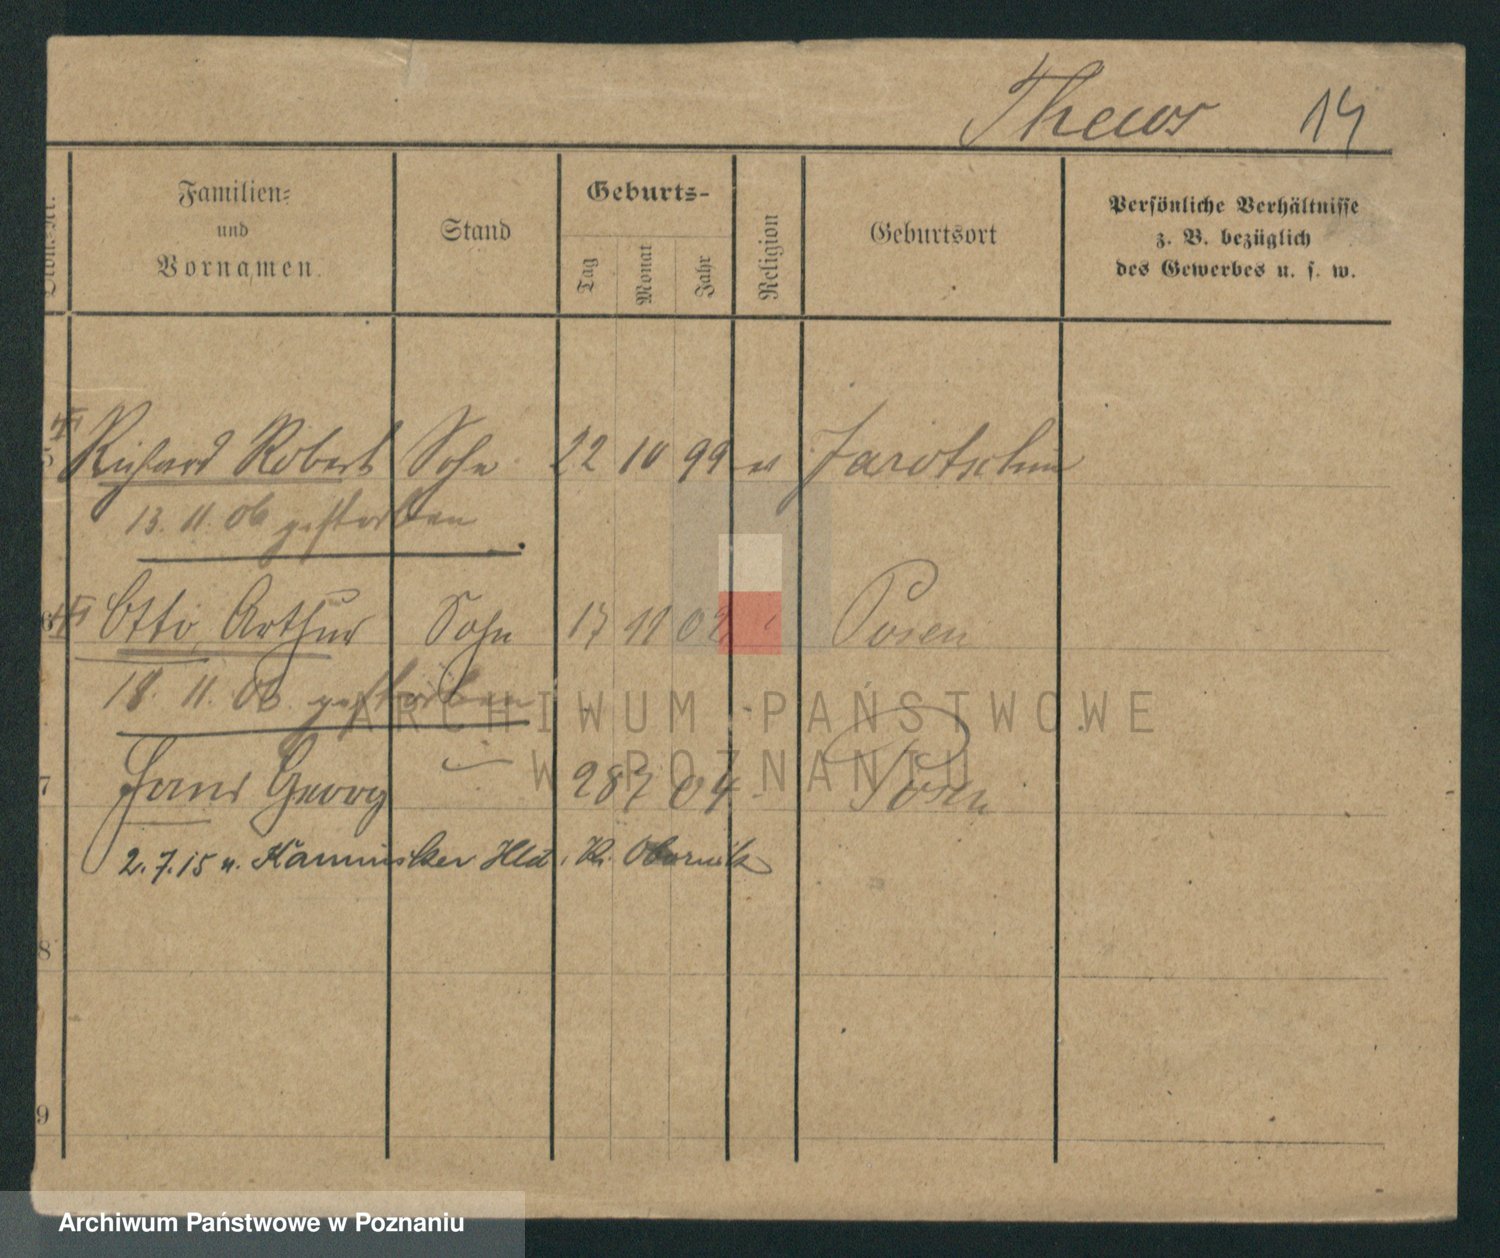 Thews 14
Ordn.-Nr.
Familien-
und
Vornamen.
Stand
Geburts-
Tag
Monat
Jahr
Religion
Geburtsort
Persönliche Verhältnisse
z. B. bezüglich
des Gewerbes u. s. w.
5 Richard Robert Sohn 22 10 99 ev Jarotschin
13. 11. 06 gestorben
6 Otto Arthur Sohn 17 11 02 Posen
18. 11. 06 gestorben
7 Hans Georg 28 7 04 Posen
2. 7. 15 n. Hld. Kr. Obornik
8
9
ARCHIWUM PAŃSTWOWE
W POZNANIU
Archiwum Państwowe w Poznaniu